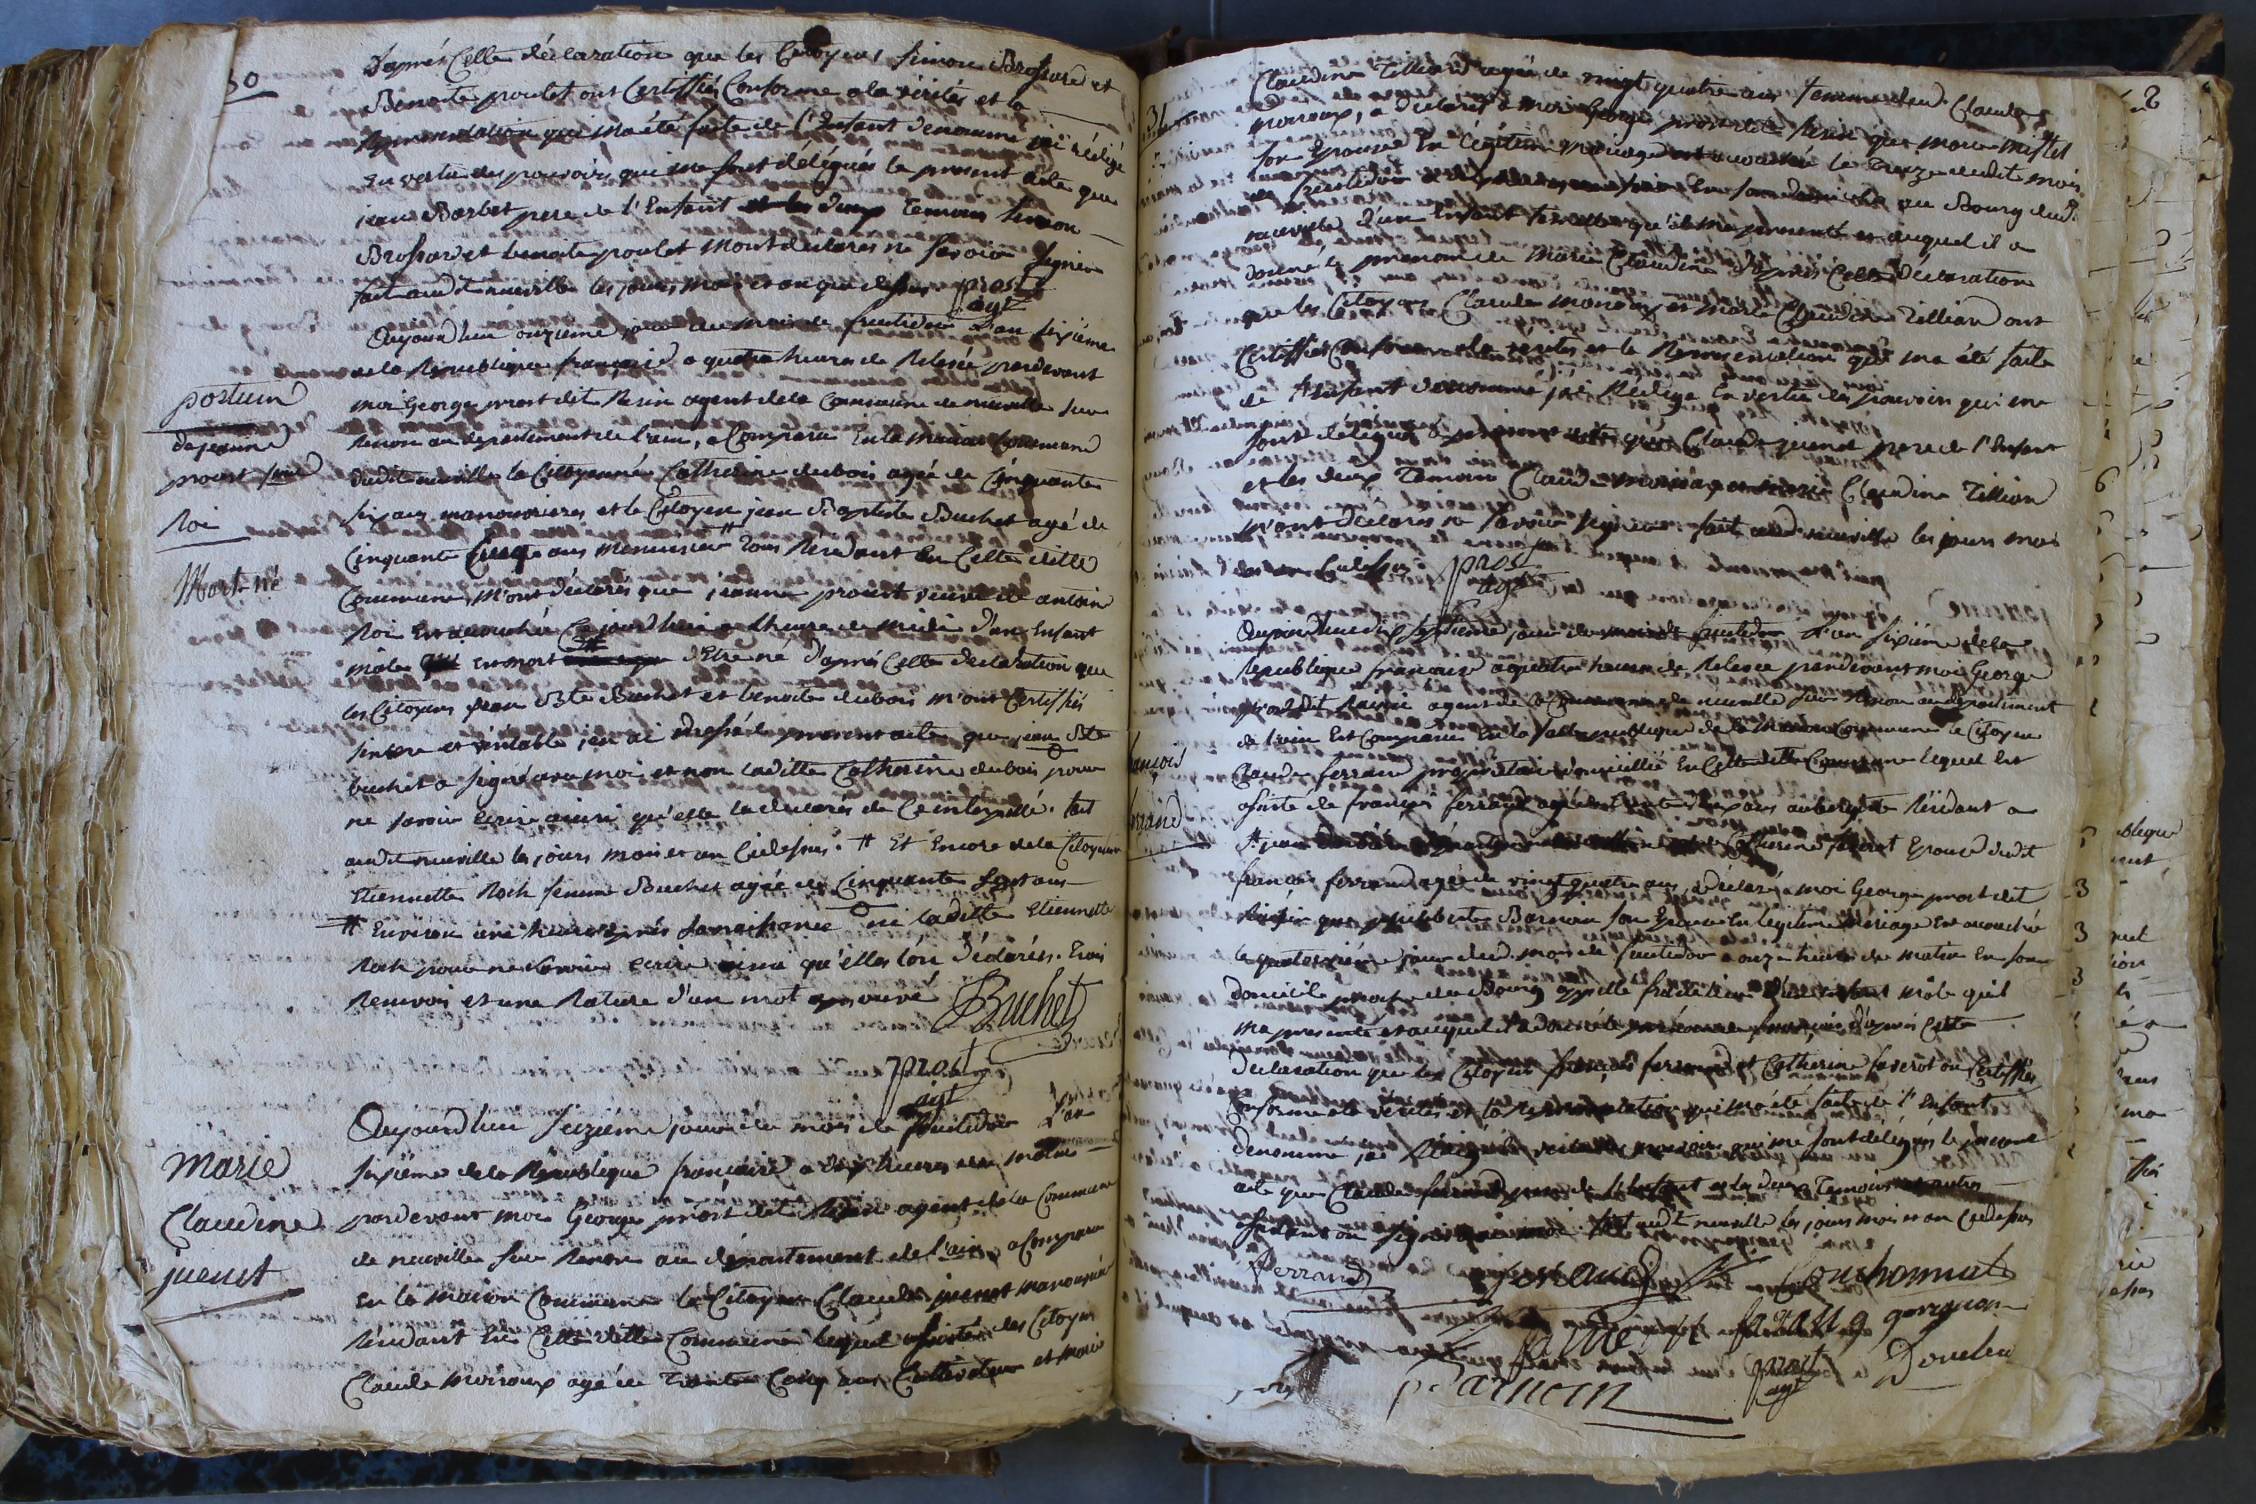 30
D'après Cette déclaration que les Citoyens Simon Brossard et
Benoite poulet ont Certiffiés Conforme a la vérités et la
Representation qui ma été faite de l'Enfant denommé jai rédigé
en vertu des pouvoirs qui me sont délégués le present acte que
jean Barbet pere de l'Enfant et les deux temoins Simon
Brossard et benoite poulet M'ont declarés ne savoir Signer
fait audit neuville les jours mois et an que dessus prost
agt
postum
de jeanne
proust fme
Roi
Mort né
Aujourdhui onzieme jour du mois de fructidor l'an sixième
de la Republique française a quatre heures de Relevée pardevant
moi George prost dit Resin agent de la Commune de neuville sur
Renon au departement de l'ain, a Comparu En la maison Commune
dudit neuville la Citoyenne Catherine dubois agée de Cinquante
six ans manouvriere et le Citoyen jean Baptiste Buchet agé de
Cinquante Cinq ans Menuisier # Tous Residant En Cette ditte
Commune, M'ont déclarés que jeanne proust veuve de antoine
Roi Est acouchée Ce jourdhui a Lheure de midi d'un Enfant
mâle Est mort # d'Etre né d'après Cette declaration que
les Citoyens jean Bte Buchet et benoite dubois M'ont Certiffiés
sincere et véritable j'en ai dressé le present acte que jean Bte
buchet a signé avec moi et non laditte Catherine dubois pour
ne savoir Ecrire ainsi qu'elle la declarés de Ce interpellé. fait
audit neuville les jours mois et an Cidessus. # Et Encore de la Citoyenne
Etiennette Roch femme Buchet agée de Cinquante Sept ans
# Environ une heure après sa naissance ni laditte Etiennette
Roch pour ne savoir ecrire ainsi qu'elles l'on Déclarés. Trois
Renvois et une Rature d'un mot aprouvé Buchet
prost
agt
Marie
Claudine
juenet
Aujourdhui Seizième jour du mois de fructidor L'an
sixième de la Republique française a dix heures du matin
pardevant moi George prost dit Resin agent de la Commune
de neuville sur Renon au département de l'ain a Comparu
En la maison Commune le Citoyen Claude juenet manouvrier
Résidant En Cette ditte Commune lequel assisté des Citoyens
Claude moiroux agé de Trente Cinq ans Cultivateur et marie
31
Claudine Tillion agée de vingt quatre ans femme dud. Claude
moiroux, a déclaré a moi George prost dit Resin que marie
son Epouse En légitime mariage est acouchée le Treize dudit mois
de fructidor En son domicile au Bourg dud.
neuville d'un Enfant femelle qu'il ma presenté et auquel il a
donné le prenom de Marie Claudine d'après Cette déclaration
que les Citoyens Claude moiroux et marie Claudine Tillion ont
Certiffiés Conforme a la verités et la Representation qui ma été faite
de l'Enfant denommé jai Rédigé En vertu des pouvoirs qui me
sont délégués le present acte que Claude juenet pere de l'Enfant
et les deux Temoins Claude moiroux et marie Claudine Tillion
m'ont déclarés ne savoir signer fait audit neuville les jours mois
et an Cidessus prost
agt
françois
ferrand
Aujourdhui dix septieme jour du mois de fructidor l'an sixieme de la
Republique française a quatre heures de Relevée pardevant moi George
prost dit Resin agent de la Commune de neuville sur Renon au département
de l'ain Est Comparu En la salle publique de la Maison Commune le Citoyen
Claude ferrand propriétaire domicilié En Cette ditte Commune lequel Est
assisté de françois ferrand agé de Trente deux ans aubergiste Résidant a
St jean et de Catherine faverot Epouse dudit
françois ferrand agée de vingt quatre ans, a déclaré a moi George prost dit
Resin que Barnoin son Epouse En legitime Mariage Est acouchée
le quatorzième jour dud. mois de fructidor a onze heures du matin En son
domicile proche du Bourg appellé d'un Enfant mâle qu'il
ma presenté et auquel il a donné le prénom de françois d'après Cette
declaration que les Citoyens françois ferrand et Catherine faverot on Certiffiés
Conforme a la vérités et la Representation qui ma été faite de l'Enfant
denommé jai Rédigé En vertu des pouvoirs qui me sont délégués le present
acte que Claude ferrand pere de l'Enfant et les deux Temoins
on signés avec moi fait audit neuville les jours mois et an Cidessus
ferrand
prost
agt
Barnoin
Douchu